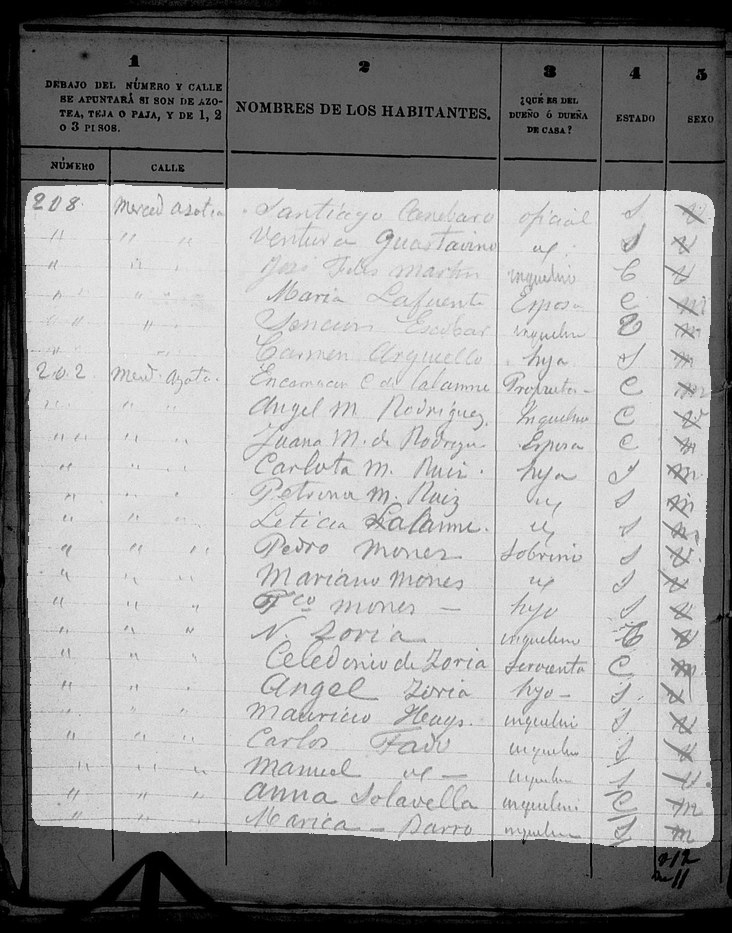 1 2 3 4 5
DEBAJO DEL NÚMERO Y CALLE SE APUNTARÁ SI SON DE AZOTEA, TEJA O PAJA, Y DE 1, 2 O 3 PISOS.
NOMBRES DE LOS HABITANTES.
¿QUÉ ES DEL DUEÑO Ó DUEÑA DE CASA?
ESTADO
SEXO
NÚMERO CALLE
208 Merced azotea Santiago Canebaro oficial S
" " " Ventura Guastavino id S
" " " José Martin inquilino C
" " " Maria Lafuente Esposa C m
" " " Escobar inquilino
Carmen Arguello hija S m
202 Merd. Azota. Encarnacion C. de Lalanne Proprieta- C m
" " " Angel M. Rodriguez Inquilino C
" " " Juana M. de Rodrigu Esposa C m
" " " Carlota M. Ruiz hija S m
" " " Petrona M. Ruiz id S m
" " " Leticia Lalanne. id S m
" " " Pedro Mones Sobrino S
" " " Mariano Mones id S
" " " Fco Mones - hijo S
" " " N. Zoria inquilino C
" " " Celedonio de Zoria Servienta C m
" " " Angel Zoria hijo - S
" " " Mauricio Heays. inquilino S
" " " Carlos inquilino S
" " " Manuel id - inquilino S
" " " Anna Solavella inquilini C m
" " " Marica - Parro inquilino S m
12
11